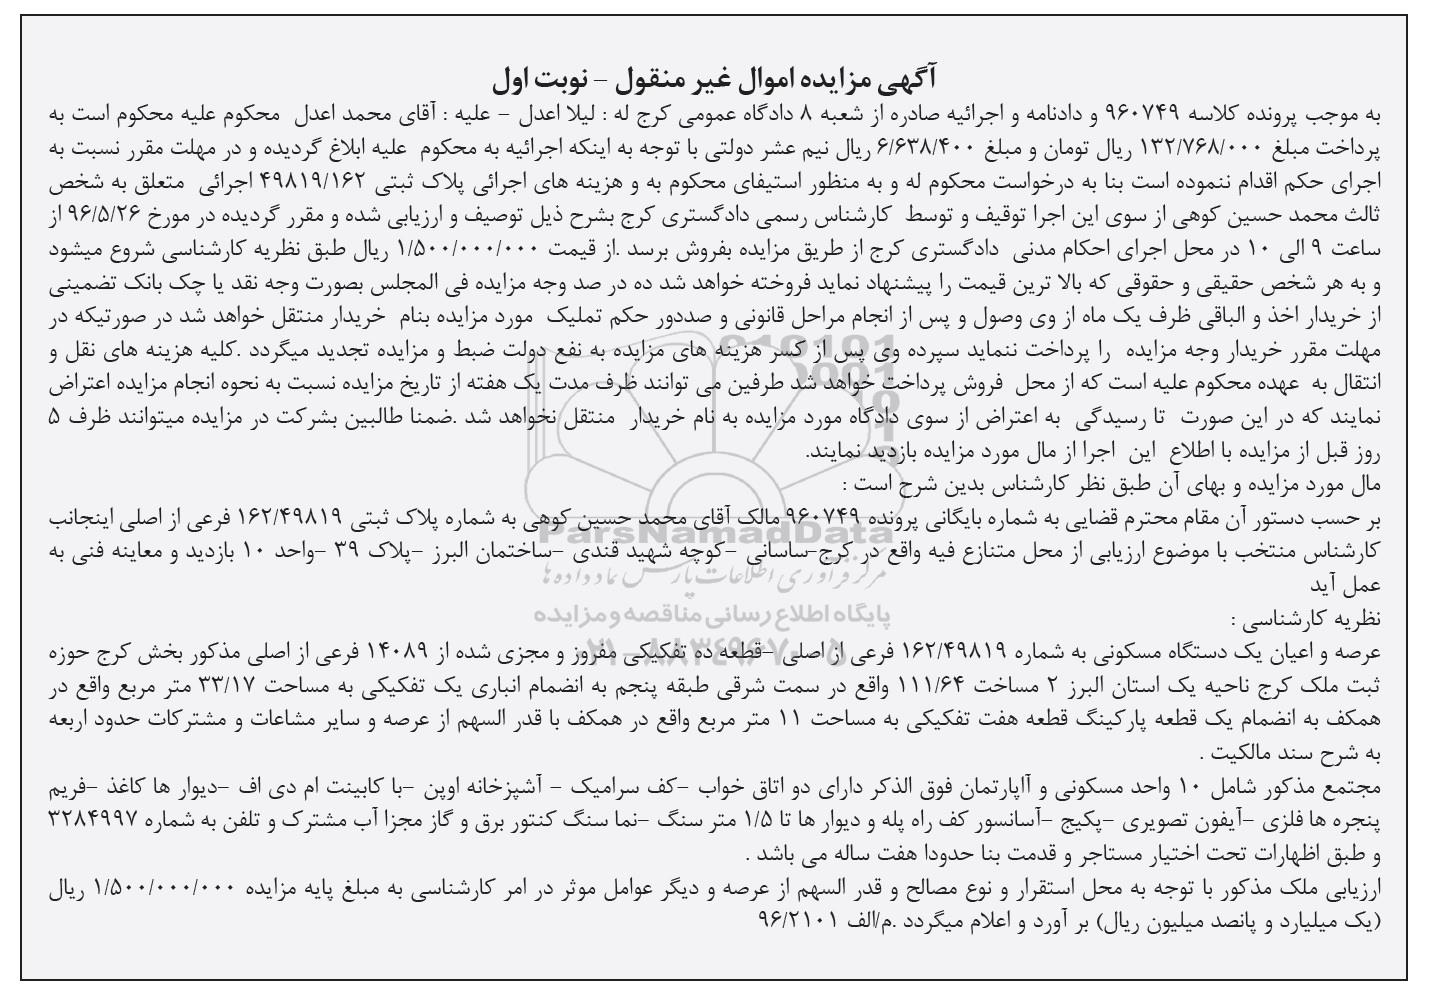 آگهی مزایده اموال غیر منقول – نوبت اول
به موجب پرونده کلاسه ۹۶۰۷۴۹ و دادنامه و اجرائیه صادره از شعبه ۸ دادگاه عمومی کرج له : لیلا اعدل – علیه : آقای محمد اعدل محکوم علیه محکوم است به
پرداخت مبلغ ۱۳۲/۷۶۸/۰۰۰ ریال تومان و مبلغ ۶/۶۳۸/۴۰۰ ریال نیم عشر دولتی با توجه به اینکه اجرائیه به محکوم علیه ابلاغ گردیده و در مهلت مقرر نسبت به
اجرای حکم اقدام ننموده است بنا به درخواست محکوم له و به منظور استیفای محکوم به و هزینه های اجرائی پلاک ثبتی ۴۹۸۱۹/۱۶۲ اجرائی متعلق به شخص
ثالث محمد حسین کوهی از سوی این اجرا توقیف و توسط کارشناس رسمی دادگستری کرج بشرح ذیل توصیف و ارزیابی شده و مقرر گردیده در مورخ ۹۶/۵/۲۶ از
ساعت ۹ الی ۱۰ در محل اجرای احکام مدنی دادگستری کرج از طریق مزایده بفروش برسد .از قیمت ۱/۵۰۰/۰۰۰/۰۰۰ ریال طبق نظریه کارشناسی شروع میشود
و به هر شخص حقیقی و حقوقی که بالا ترین قیمت را پیشنهاد نماید فروخته خواهد شد ده در صد وجه مزایده فی المجلس بصورت وجه نقد یا چک بانک تضمینی
از خریدار اخذ و الباقی ظرف یک ماه از وی وصول و پس از انجام مراحل قانونی و صددور حکم تملیک مورد مزایده بنام خریدار منتقل خواهد شد در صورتیکه در
مهلت مقرر خریدار وجه مزایده را پرداخت ننماید سپرده وی پس از کسر هزینه های مزایده به نفع دولت ضبط و مزایده تجدید میگردد .کلیه هزینه های نقل و
انتقال به عهده محکوم علیه است که از محل فروش پرداخت خواهد شد طرفین می توانند ظرف مدت یک هفته از تاریخ مزایده نسبت به نحوه انجام مزایده اعتراض
نمایند که در این صورت تا رسیدگی به اعتراض از سوی دادگاه مورد مزایده به نام خریدار منتقل نخواهد شد .ضمنا طالبین بشرکت در مزایده میتوانند ظرف ۵
روز قبل از مزایده با اطلاع این اجرا از مال مورد مزایده بازدید نمایند.
مال مورد مزایده و بهای آن طبق نظر کارشناس بدین شرح است :
بر حسب دستور آن مقام محترم قضایی به شماره بایگانی پرونده ۹۶۰۷۴۹ مالک آقای محمد حسین کوهی به شماره پلاک ثبتی ۱۶۲/۴۹۸۱۹ فرعی از اصلی اینجانب
ParsNamadData
کارشناس منتخب با موضوع ارزیابی از محل متنازع فیه واقع در کرج-ساسانی –کوچه شهید قندی –ساختمان البرز –پلاک ۳۹ –واحد ۱۰ بازدید و معاینه فنی به
عمل آید
مرکز فرآوری اطلاعات پارس نماد داده ها
پایگاه اطلاع رسانی مناقصه و مزایده
نظریه کارشناسی :
عرصه و اعیان یک دستگاه مسکونی به شماره ۱۶۲/۴۹۸۱۹ فرعی از اصلی –قطعه ده تفکیکی مفروز و مجزی شده از ۱۴۰۸۹ فرعی از اصلی مذکور بخش کرج حوزه
ثبت ملک کرج ناحیه یک استان البرز ۲ مساخت ۱۱۱/۶۴ واقع در سمت شرقی طبقه پنجم به انضمام انباری یک تفکیکی به مساحت ۳۳/۱۷ متر مربع واقع در
همکف به انضمام یک قطعه پارکینگ قطعه هفت تفکیکی به مساحت ۱۱ متر مربع واقع در همکف با قدر السهم از عرصه و سایر مشاعات و مشترکات حدود اربعه
به شرح سند مالکیت .
مجتمع مذکور شامل ۱۰ واحد مسکونی و آاپارتمان فوق الذکر دارای دو اتاق خواب –کف سرامیک – آشپزخانه اوپن –با کابینت ام دی اف –دیوار ها کاغذ –فریم
پنجره ها فلزی –آیفون تصویری –پکیج –آسانسور کف راه پله و دیوار ها تا ۱/۵ متر سنگ –نما سنگ کنتور برق و گاز مجزا آب مشترک و تلفن به شماره ۳۲۸۴۹۹۷
و طبق اظهارات تحت اختیار مستاجر و قدمت بنا حدودا هفت ساله می باشد .
ارزیابی ملک مذکور با توجه به محل استقرار و نوع مصالح و قدر السهم از عرصه و دیگر عوامل موثر در امر کارشناسی به مبلغ پایه مزایده ۱/۵۰۰/۰۰۰/۰۰۰ ریال
(یک میلیارد و پانصد میلیون ریال) بر آورد و اعلام میگردد .م/الف ۹۶/۲۱۰۱